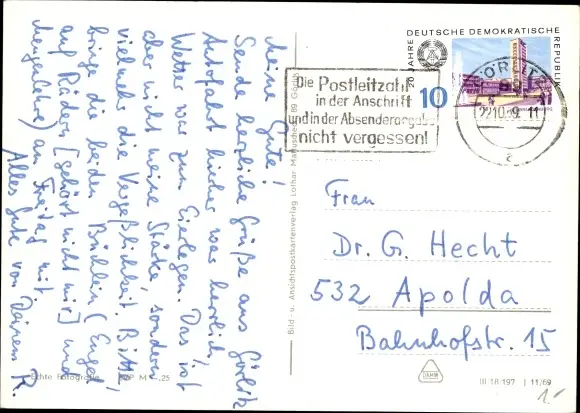 Meine Gute!
Sende herzliche Grüße aus Görlitz
Autofahrt hierher war herrlich!
Wetter war zum Eierlegen. Das ist
aber nicht meine Stärke, sondern
vielmehr die Vergeßlichkeit. Bitte,
bringe die beiden Büchlein (Engel
auf Rädern [gehört nicht mir] und
) am Freitag mit.
Alles Gute von Deinem R.
Echte Fotografie M -,25
Bild- u. Ansichtspostkartenverlag Lothar 89 Görlitz
20 JAHRE DEUTSCHE DEMOKRATISCHE REPUBLIK
10
Die Postleitzahl
in der Anschrift
und in der Absenderangabe
nicht vergessen!
GÖRLITZ
89
22.10.69.11
c
Frau
Dr. G. Hecht
532 Apolda
Bahnhofstr. 15
III 18 197 | 11/69
1.-